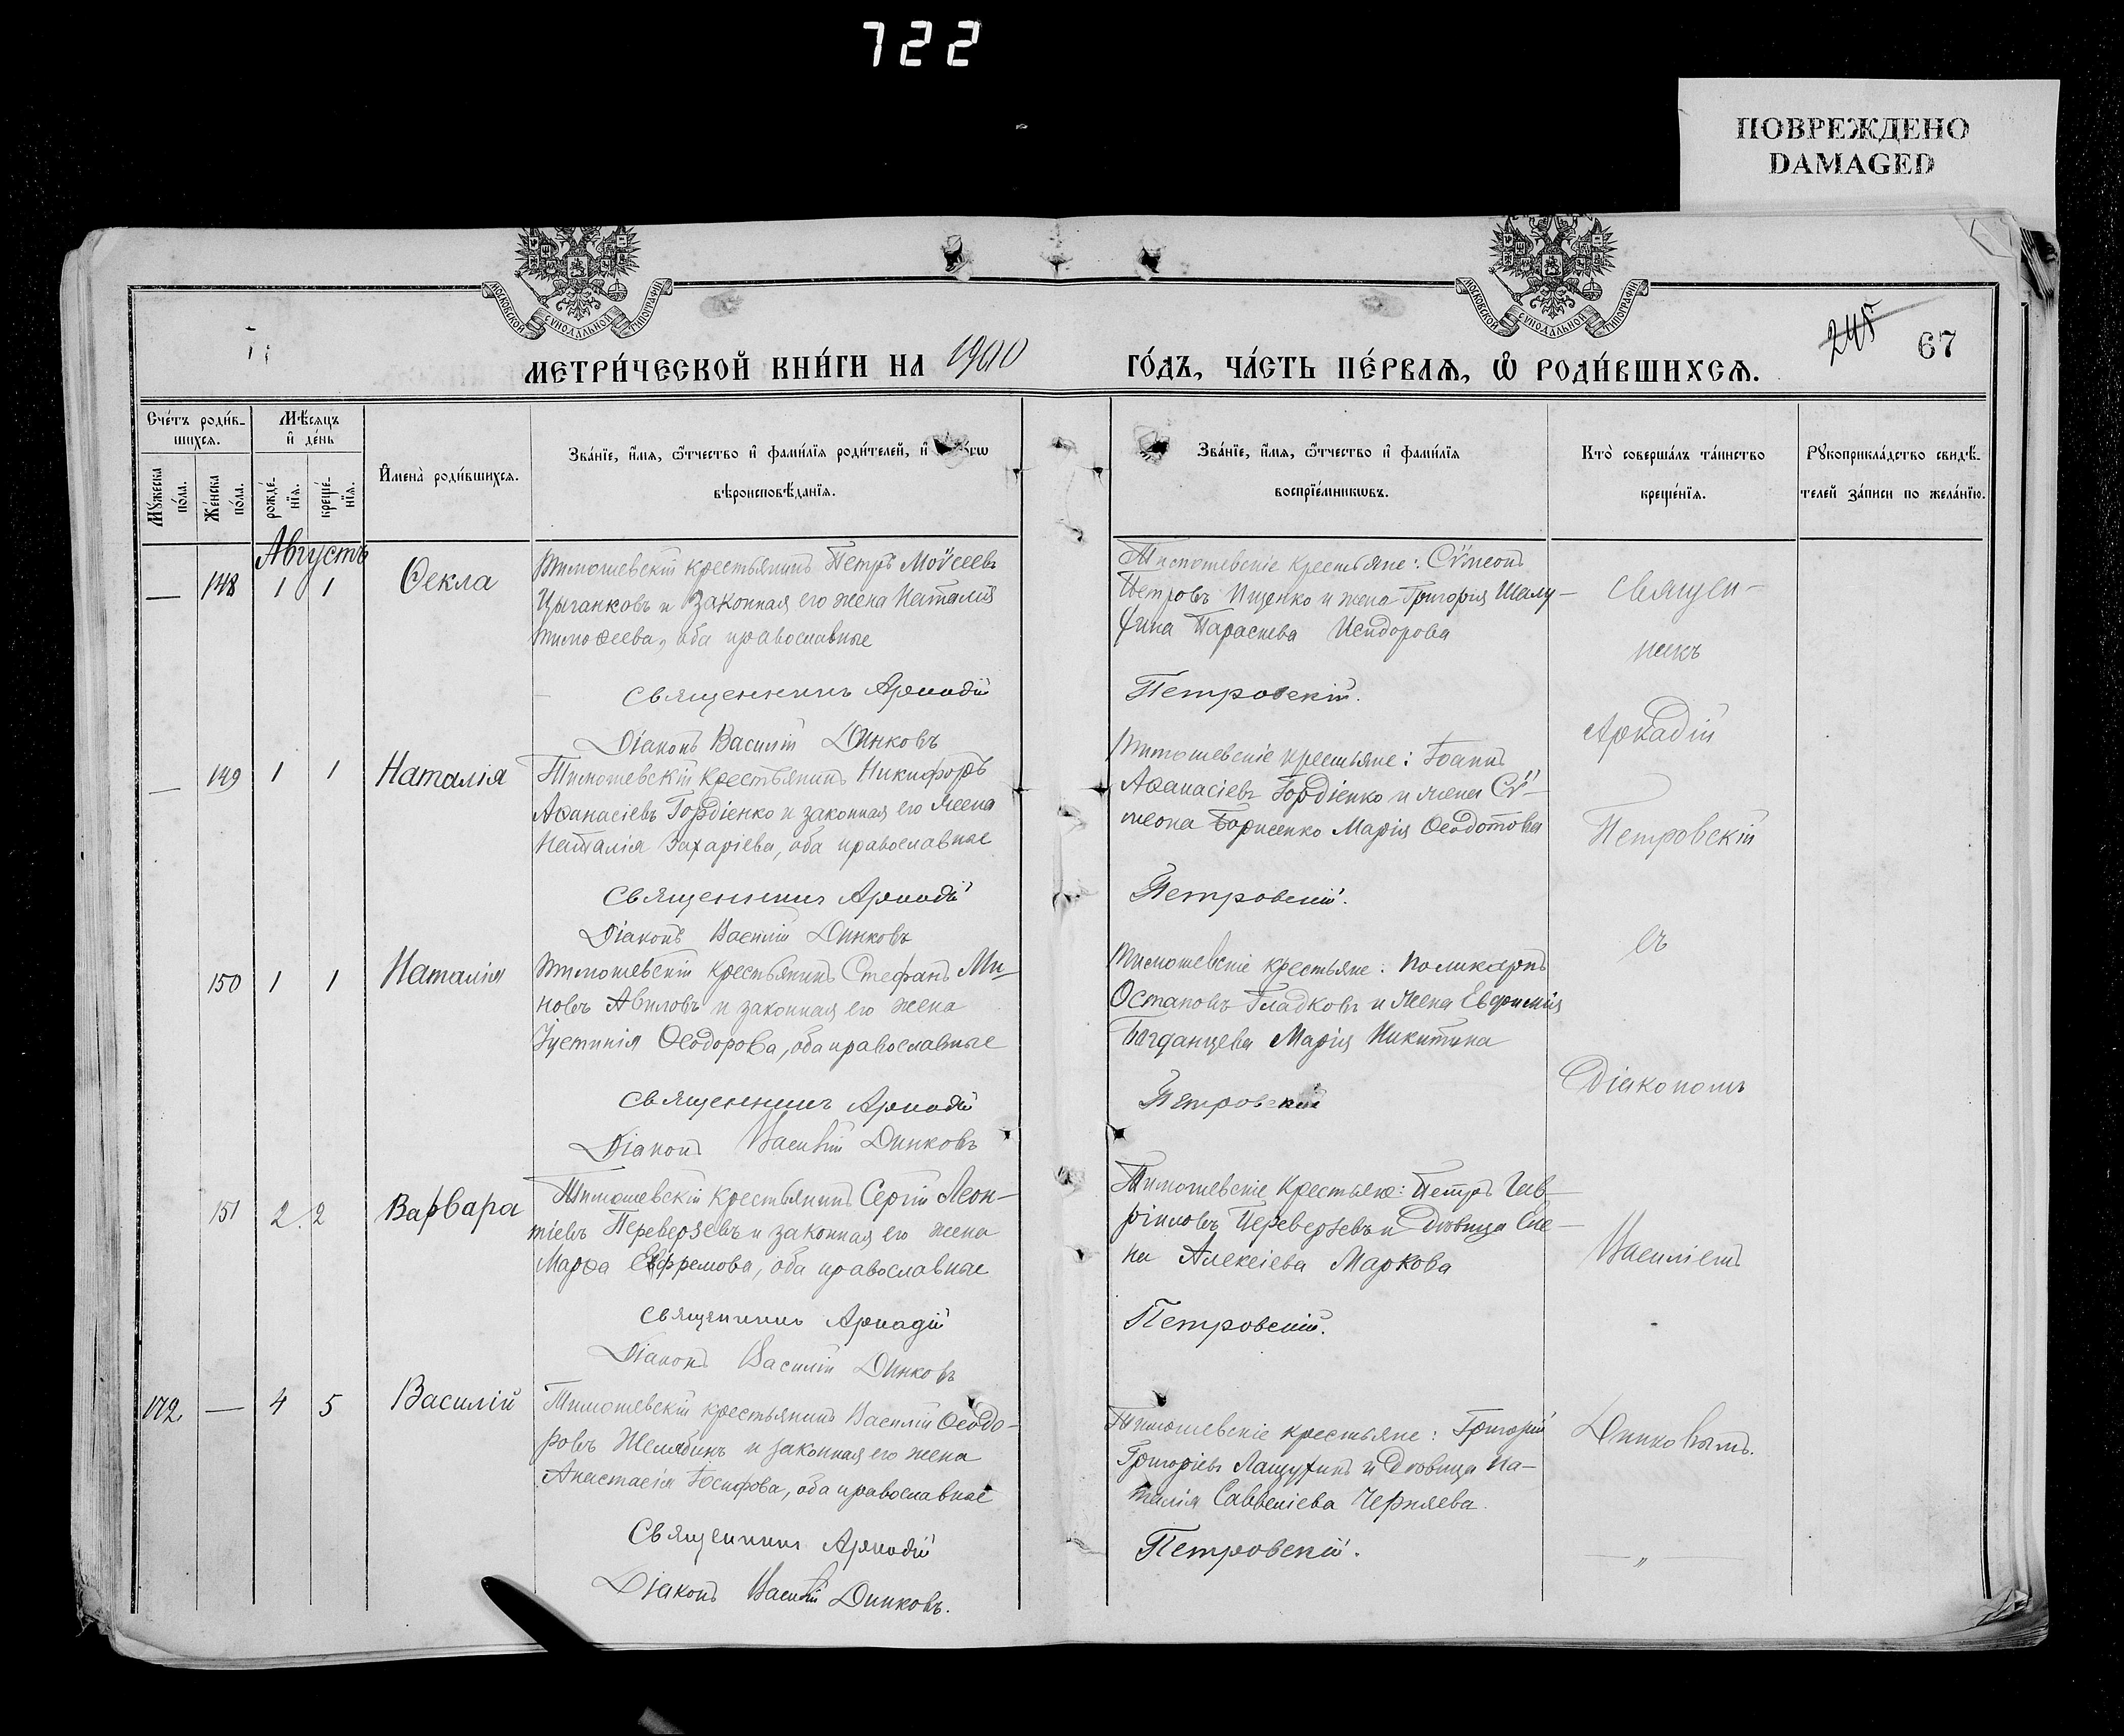 722
ПОВРЕЖДЕНО
DAMAGED
МОСКОВСКОЙ СѴНОДАЛЬНОЙ ТИПОГРАФІИ
МОСКОВСКОЙ СѴНОДАЛЬНОЙ ТИПОГРАФІИ
245 67
МЕТРИ́ЧЕСКОЙ КНИ́ГИ НА 1900 ГО́ДЪ, ЧА́СТЬ ПЕ́РВАѦ, Ѡ РОДИ́ВШИХСѦ.
Сче́тъ роди́в-
шихсѧ.
Мꙋ́жеска по́ла.
Же́нска по́ла.
Мѣ́сѧцъ
и҆ де́нь
рожде́-
нїѧ.
креще́-
нїѧ.
И҆мена̀ роди́вшихсѧ.
Зва́нїе, и҆́мѧ, ѻ҆́тчество и҆ фами́лїѧ роди́телей, и҆
вѣроисповѣ́данїѧ.
Зва́нїе, и҆́мѧ, ѻ҆́тчество и҆ фами́лїѧ
воспрїе́мникѡвъ.
Кто̀ соверша́лъ та́инство
креще́нїѧ.
Рꙋкоприкла́дство свидѣ́-
телей за́писи по жела́нїю.
Августъ
— 148 1 1 Ѳекла
Тимошевскій крестьянинъ Петръ Моѵсеевъ
Цыганковъ и законная его жена Наталія
Тимоѳеева, оба православные
Священникъ Аркадій
Діаконъ Василій Динковъ
Тимошевскіе крестьяне: Сѵмеонъ
Петровъ Ищенко и жена Григорія Шалу-
хина Параскева Исидорова
Петровскій.
— 149 1 1 Наталія
Тимошевскій крестьянинъ Никифоръ
Аѳанасіевъ Гордіенко и законная его жена
Наталія Захаріева, оба православные
Священникъ Аркадій
Діаконъ Василій Динковъ
Тимошевскіе крестьяне: Іоаннъ
Аѳанасіевъ Гордіенко и жена Сѵ-
меона Борисенко Марія Ѳеодотова
Петровскій.
150 1 1 Наталія
Тимошевскій крестьянинъ Стефанъ Ми-
новъ Авиловъ и законная его жена
Іустинія Ѳеодорова, оба православные
Священникъ Аркадій
Діаконъ Василій Динковъ
Тимошевскіе крестьяне: Поликарпъ
Остаповъ Гладковъ и жена Евфимія
Богданцева Марія Никитина
Петровскій
151 2. 2 Варвара
Тимошевскій крестьянинъ Сергій Леон-
тіевъ Переверзевъ и законная его жена
Марѳа Ефремова, оба православные
Священникъ Аркадій
Діаконъ Василій Динковъ
Тимошевскіе крестьяне: Петръ Гав-
ріиловъ Переверзевъ и Дѣвица Еле-
на Алексіева Маркова
Петровскій.
172. — 4 5 Василій
Тимошевскій крестьянинъ Василій Ѳеодо-
ровъ Желябинъ и законная его жена
Анастасія Іосифова, оба православные
Священникъ Аркадій
Діаконъ Василій Динковъ.
Тимошевскіе крестьяне: Григорій
Григоріевъ Лащухинъ и Дѣвица На-
талія Савеліева Черняева.
Петровскій.
Священ-
никъ
Аркадій
Петровскій
съ
Діакономъ
Василіемъ
Динковымъ.
— „ —